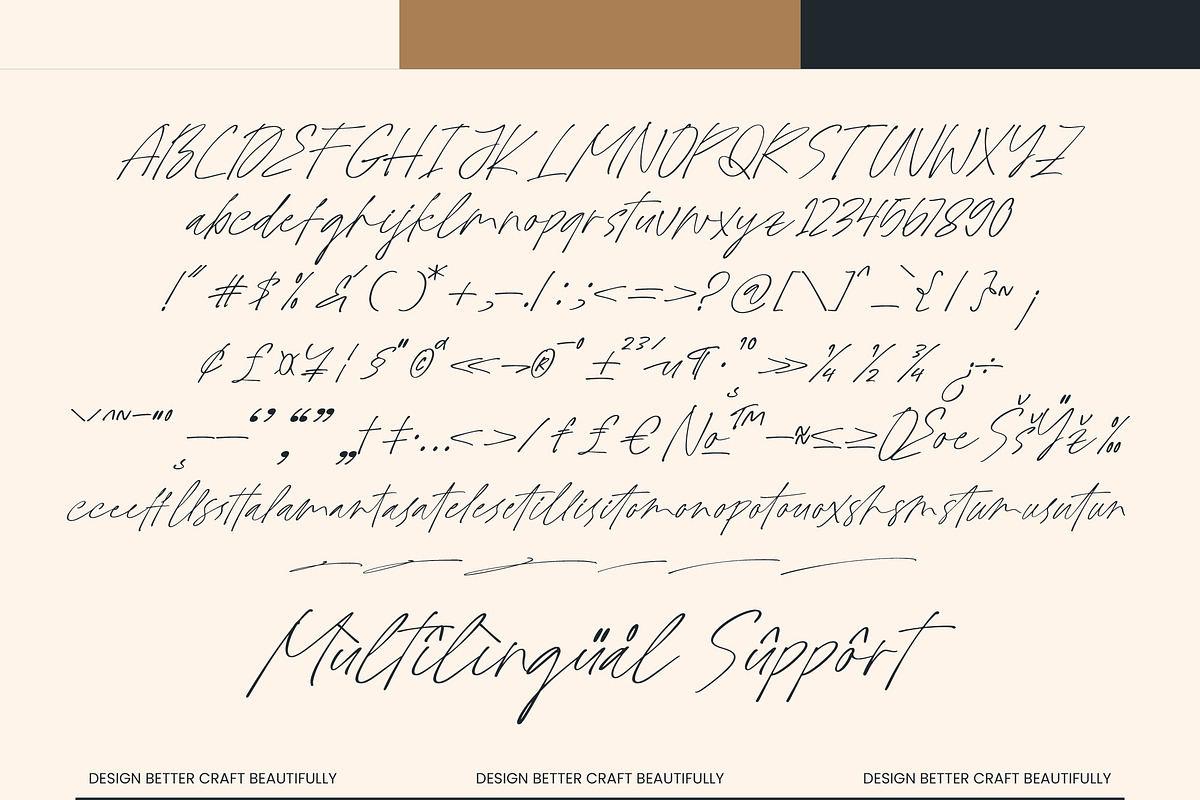 ABCDEFGHIJKLMNOPQRSTUVWXYZ
abcdefghijklmnopqrstuvwxyz1234567890
!"#$%&'()*+,-./:;<=>?@[\]^_`{|}~
¢£¤¥¦§"©ª«¬®¯°±²³´µ¶·¹º»¼½¾¿÷
——‘’‚“”„†‡·…‹›⁄ƒ₤€№™−≈≤≥ŒœŠšŸž‰
cceeffllssttalamantasatelesetillisitomonopotouoxshsmstumusutun
Mùltîlìngüål Sûppôrt
DESIGN BETTER CRAFT BEAUTIFULLY DESIGN BETTER CRAFT BEAUTIFULLY DESIGN BETTER CRAFT BEAUTIFULLY